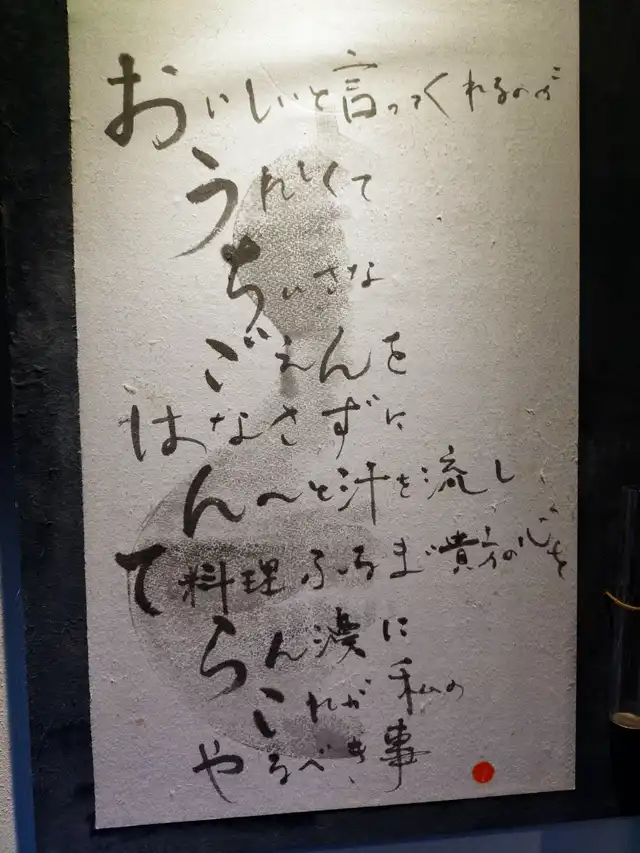 おいしいと言ってくれるのが
うれしくて
ちいさな
ごえんを
はなさずに
ん〜と汗を流し
て料理ふるまい貴方の心を
らん漫に
これが私の
やるべき事